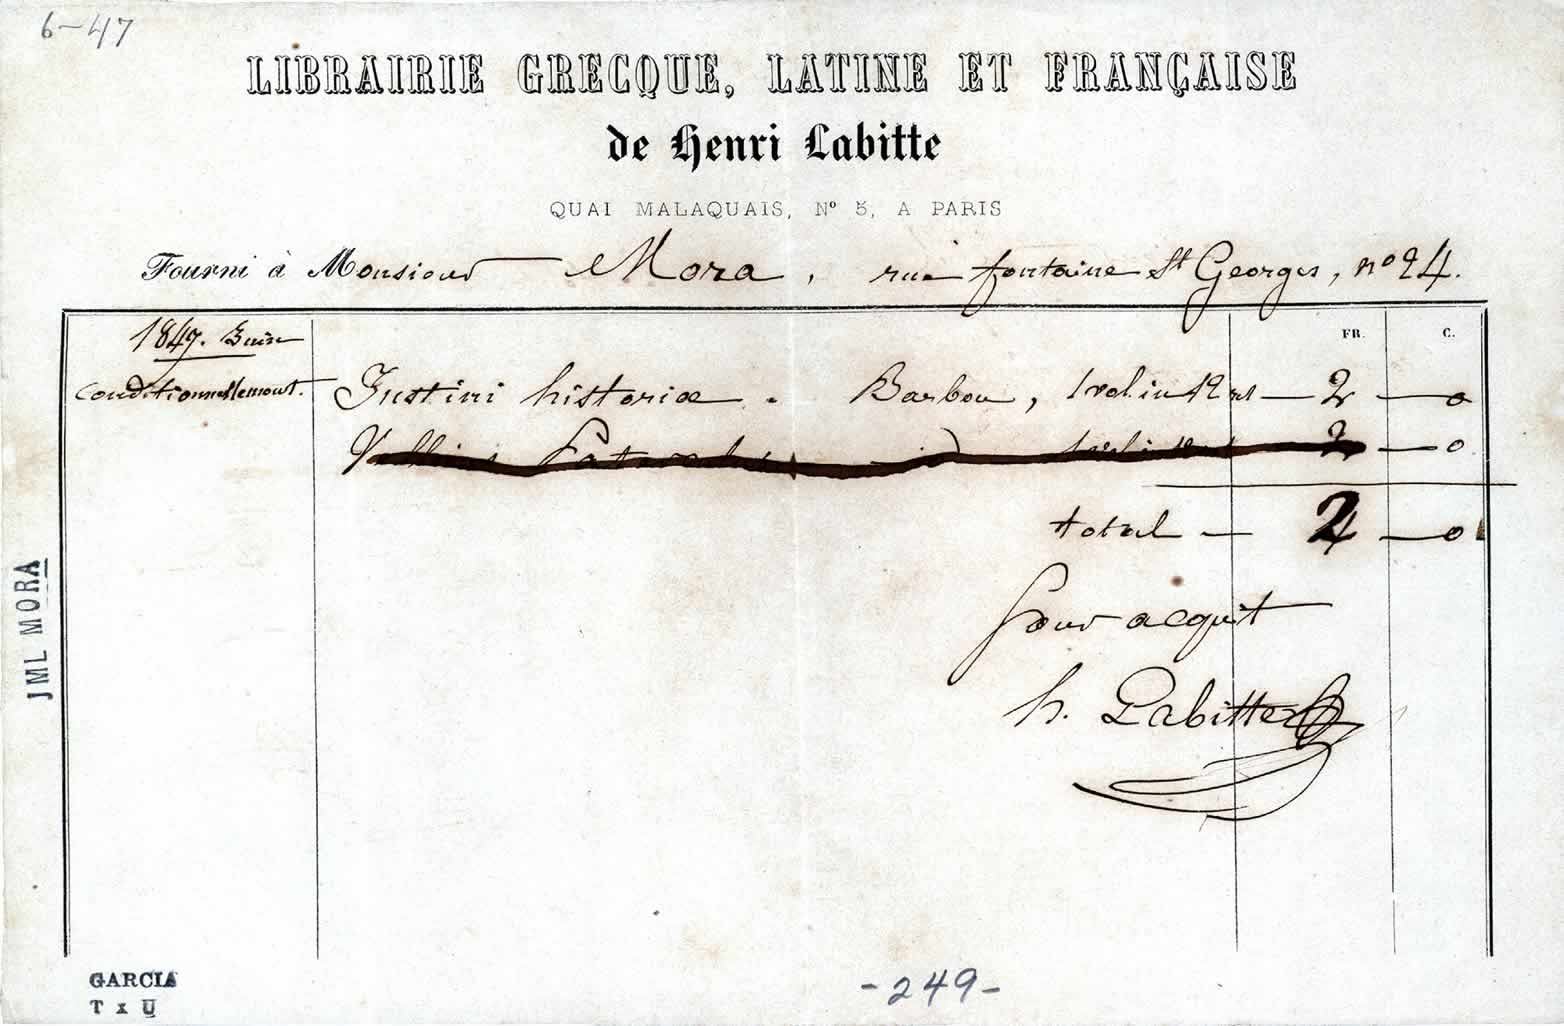 6-47
LIBRAIRIE GRECQUE, LATINE ET FRANÇAISE
de Henri Labitte
QUAI MALAQUAIS, Nº 5, A PARIS
Fourni à Monsieur Mora, rue fontaine St Georges, nº 24.
1847. Juin
FR. C.
conditionnellement. Justini historiæ. Barbou, 1 vol. in 12 — 2 — 0
2 — 0
total — 2 — 0
Pour acquit
h. Labitte
JML MORA
GARCIA
T x U
-249-